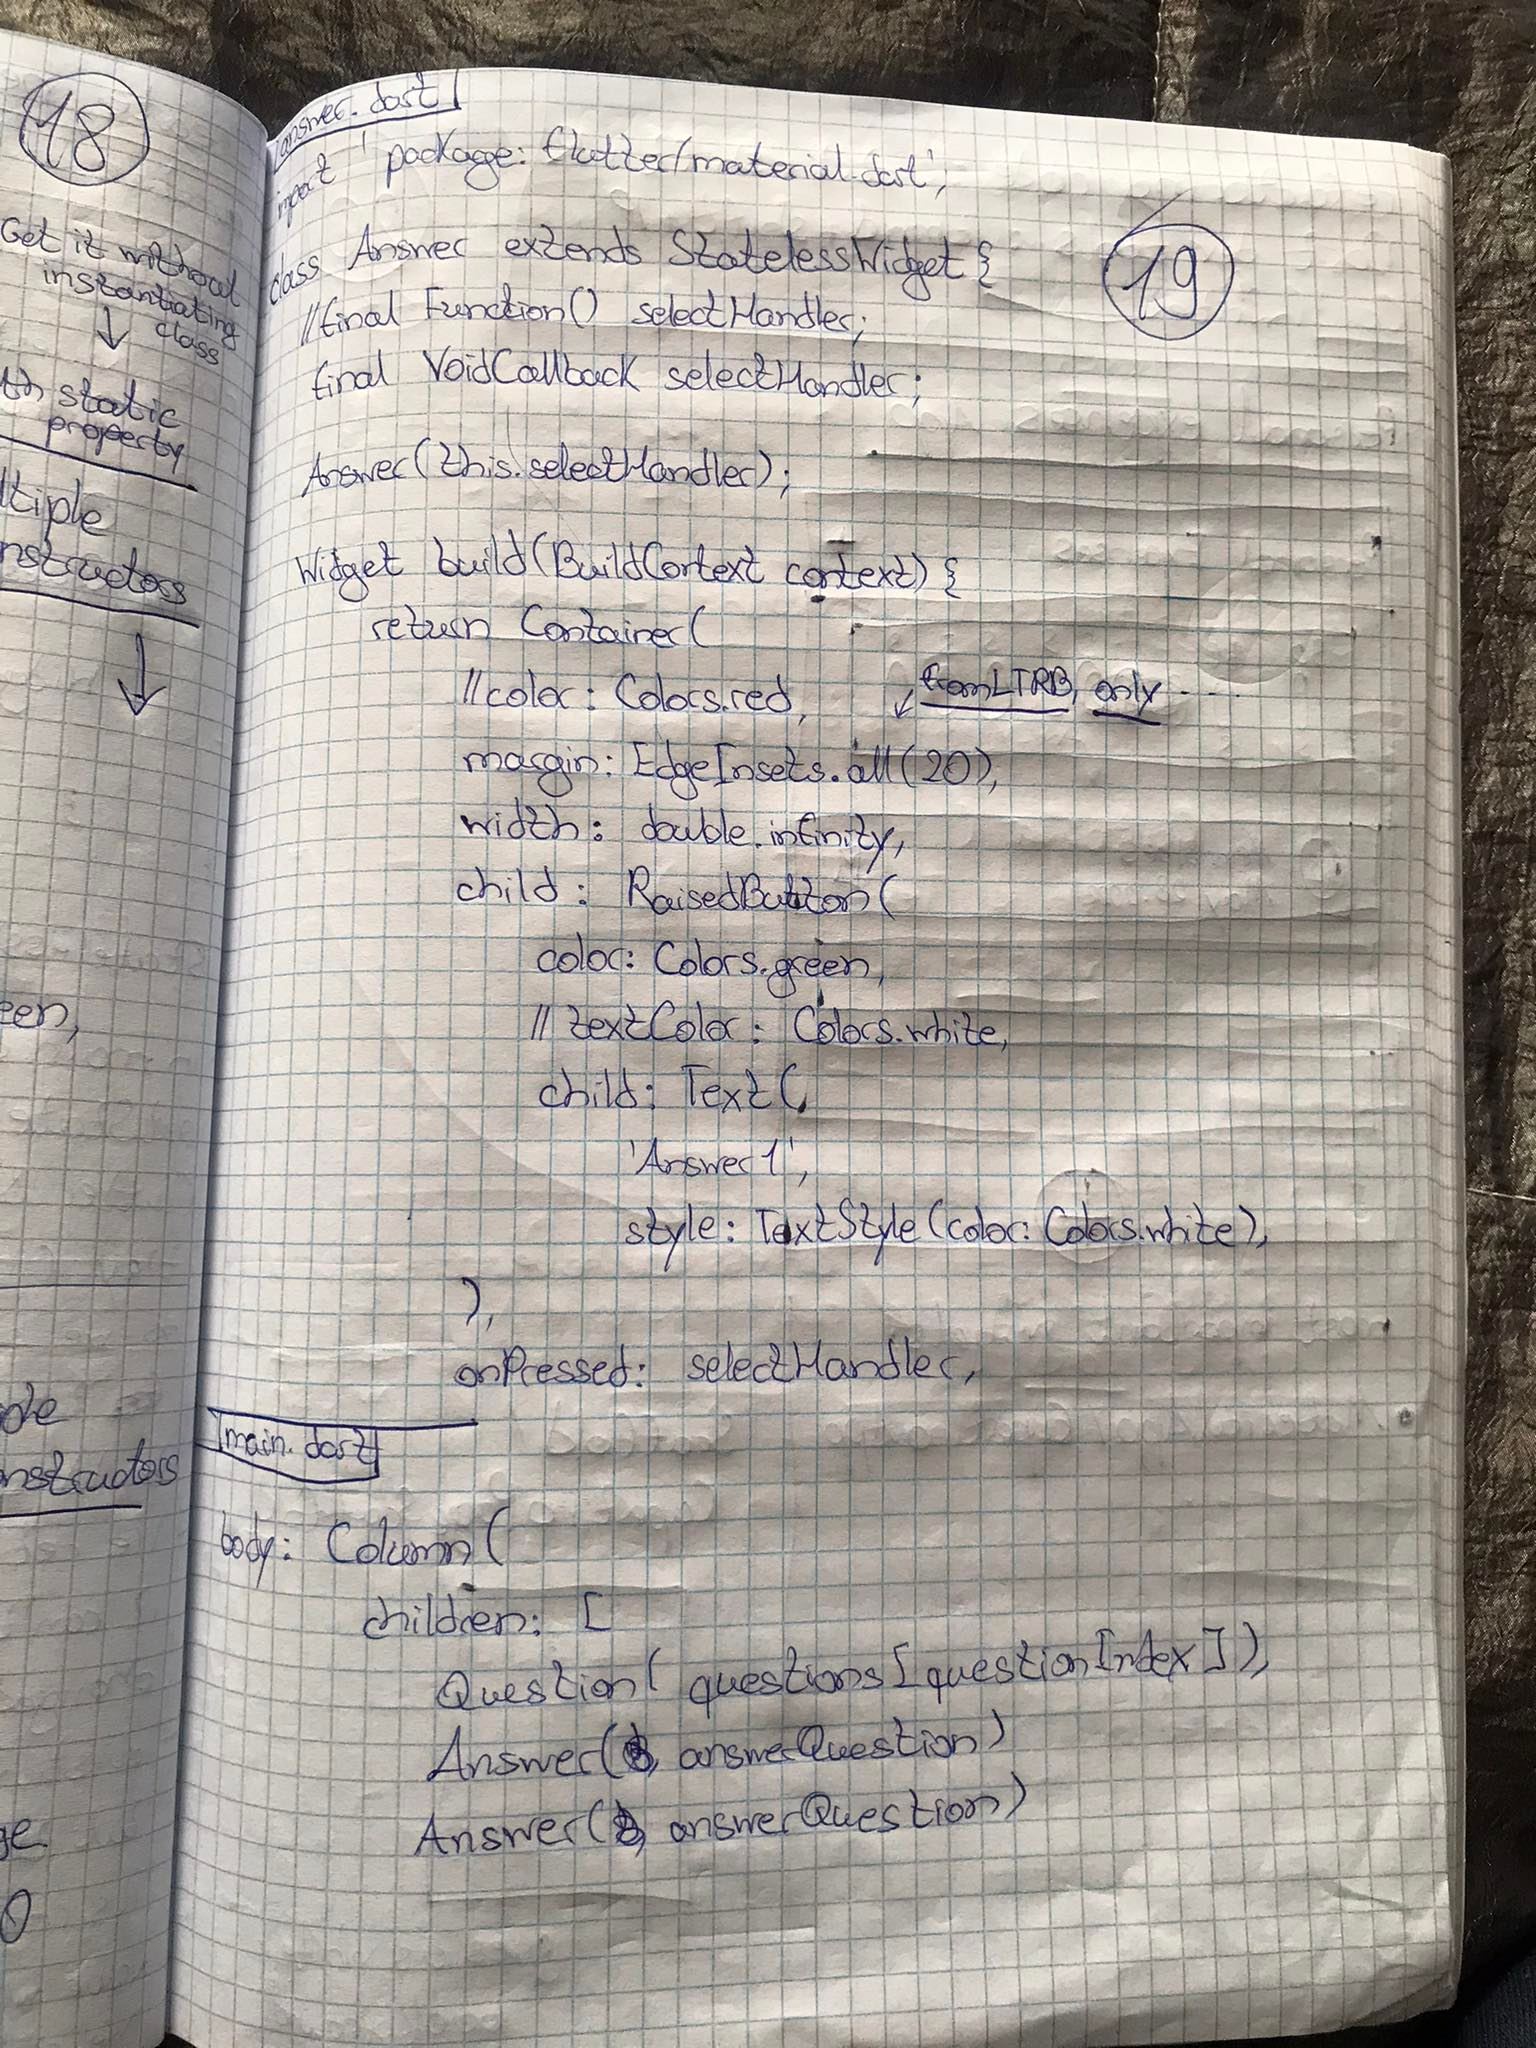 18
Get it without
instantiating
class
static
property
ltiple
nstructors
een,
ode
nstructors
ge
answer.dart
import 'package: flutter/material.dart';
19
class Answer extends StatelessWidget {
//final Function() selectHandler;
final VoidCallback selectHandler;
Answer(this.selectHandler);
Widget build(BuildContext context) {
return Container(
//color: Colors.red,
fromLTRB, only ....
margin: EdgeInsets.all(20),
width: double.infinity,
child: RaisedButton(
color: Colors.green,
// textColor: Colors.white,
child: Text(
'Answer1',
style: TextStyle(color: Colors.white),
),
onPressed: selectHandler,
main.dart
body: Column(
children: [
Question( questions[questionIndex]),
Answer( answerQuestion)
Answer( answerQuestion)